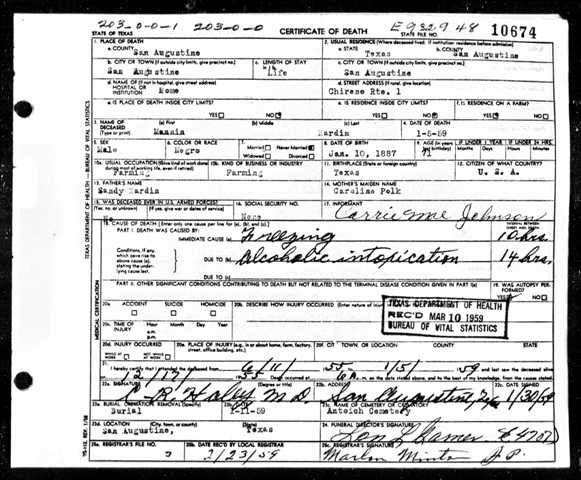 203-0-0-1 203-0-0 E932.9 48
STATE OF TEXAS CERTIFICATE OF DEATH STATE FILE NO. 10674
1. PLACE OF DEATH 2. USUAL RESIDENCE (Where deceased lived. If institution: residence before admission)
a. COUNTY San Augustine a. STATE Texas b. COUNTY San Augustine
b. CITY OR TOWN (If outside city limits, give precinct no.) c. LENGTH OF STAY c. CITY OR TOWN (If outside city limits, give precinct no.)
San Augustine Life San Augustine
d. NAME OF (If not in hospital, give street address) d. STREET ADDRESS (If rural, give location)
HOSPITAL OR INSTITUTION Home Chirese Rte. 1
e. IS PLACE OF DEATH INSIDE CITY LIMITS? e. IS RESIDENCE INSIDE CITY LIMITS? f. IS RESIDENCE ON A FARM?
YES NO YES NO YES NO
3. NAME OF DECEASED (Type or print) (a) First (b) Middle (c) Last 4. DATE OF DEATH
Mannin Hardin 1-5-59
5. SEX 6. COLOR OR RACE 7. Married Never Married 8. DATE OF BIRTH 9. AGE (In years IF UNDER 1 YEAR IF UNDER 24 HRS.
Male Negro Widowed Divorced Jan. 10, 1887 71 Months Days Hours Min.
10a. USUAL OCCUPATION (Give kind of work done during most of working life, even if retired) 10b. KIND OF BUSINESS OR INDUSTRY 11. BIRTHPLACE (State or foreign country) 12. CITIZEN OF WHAT COUNTRY?
Farming Farming Texas U. S. A.
13. FATHER'S NAME 14. MOTHER'S MAIDEN NAME
Sandy Hardin Caroline Polk
15. WAS DECEASED EVER IN U.S. ARMED FORCES? 16. SOCIAL SECURITY NO. 17. INFORMANT
(Yes, no, or unknown) (If yes, give war or dates of service) None Carrie Mae Johnson
18. CAUSE OF DEATH (Enter only one cause per line for (a), (b), and (c).) INTERVAL BETWEEN ONSET AND DEATH
PART I. DEATH WAS CAUSED BY:
IMMEDIATE CAUSE (a) Freezing 10 hrs.
Conditions, if any, which gave rise to above cause (a), stating the underlying cause last. DUE TO (b) Alcoholic intoxication 14 hrs.
DUE TO (c)
PART II. OTHER SIGNIFICANT CONDITIONS CONTRIBUTING TO DEATH BUT NOT RELATED TO THE TERMINAL DISEASE CONDITION GIVEN IN PART I(a) 19. WAS AUTOPSY PERFORMED?
YES NO
20a. ACCIDENT SUICIDE HOMICIDE 20b. DESCRIBE HOW INJURY OCCURRED.
TEXAS DEPARTMENT OF HEALTH
REC'D MAR 10 1959
BUREAU OF VITAL STATISTICS
20c. TIME OF INJURY Hour Month Day Year
a.m.
p.m.
20d. INJURY OCCURRED 20e. PLACE OF INJURY (e.g., in or about home, farm, factory, street, office building, etc.) 20f. CITY, TOWN, OR LOCATION COUNTY STATE
WHILE AT WORK NOT WHILE AT WORK
21. I hereby certify that I attended the deceased from 6/11 55 1/5/ 59 and last saw the deceased alive
12/17 Death occurred at 6 A. m. on the date stated above, and to the best of my knowledge, from the causes stated.
22a. SIGNATURE (Degree or title) 22b. ADDRESS 22c. DATE SIGNED
C. R. Haley M D San Augustine, Tex 1/30/59
23a. BURIAL, CREMATION, REMOVAL (Specify) 23b. DATE 23c. NAME OF CEMETERY OR CREMATORY
Burial 1-11-59 Antoich Cemetery
23d. LOCATION (City, town, or county) (State) 24. FUNERAL DIRECTOR'S SIGNATURE
San Augustine, Texas
25a. REGISTRAR'S FILE NO. 25b. DATE REC'D BY LOCAL REGISTRAR 25c. REGISTRAR'S SIGNATURE
2/23/59 Marlon Minton J.P.
TEXAS DEPARTMENT OF HEALTH—BUREAU OF VITAL STATISTICS
MEDICAL CERTIFICATION
VS-112, REV. 1/58